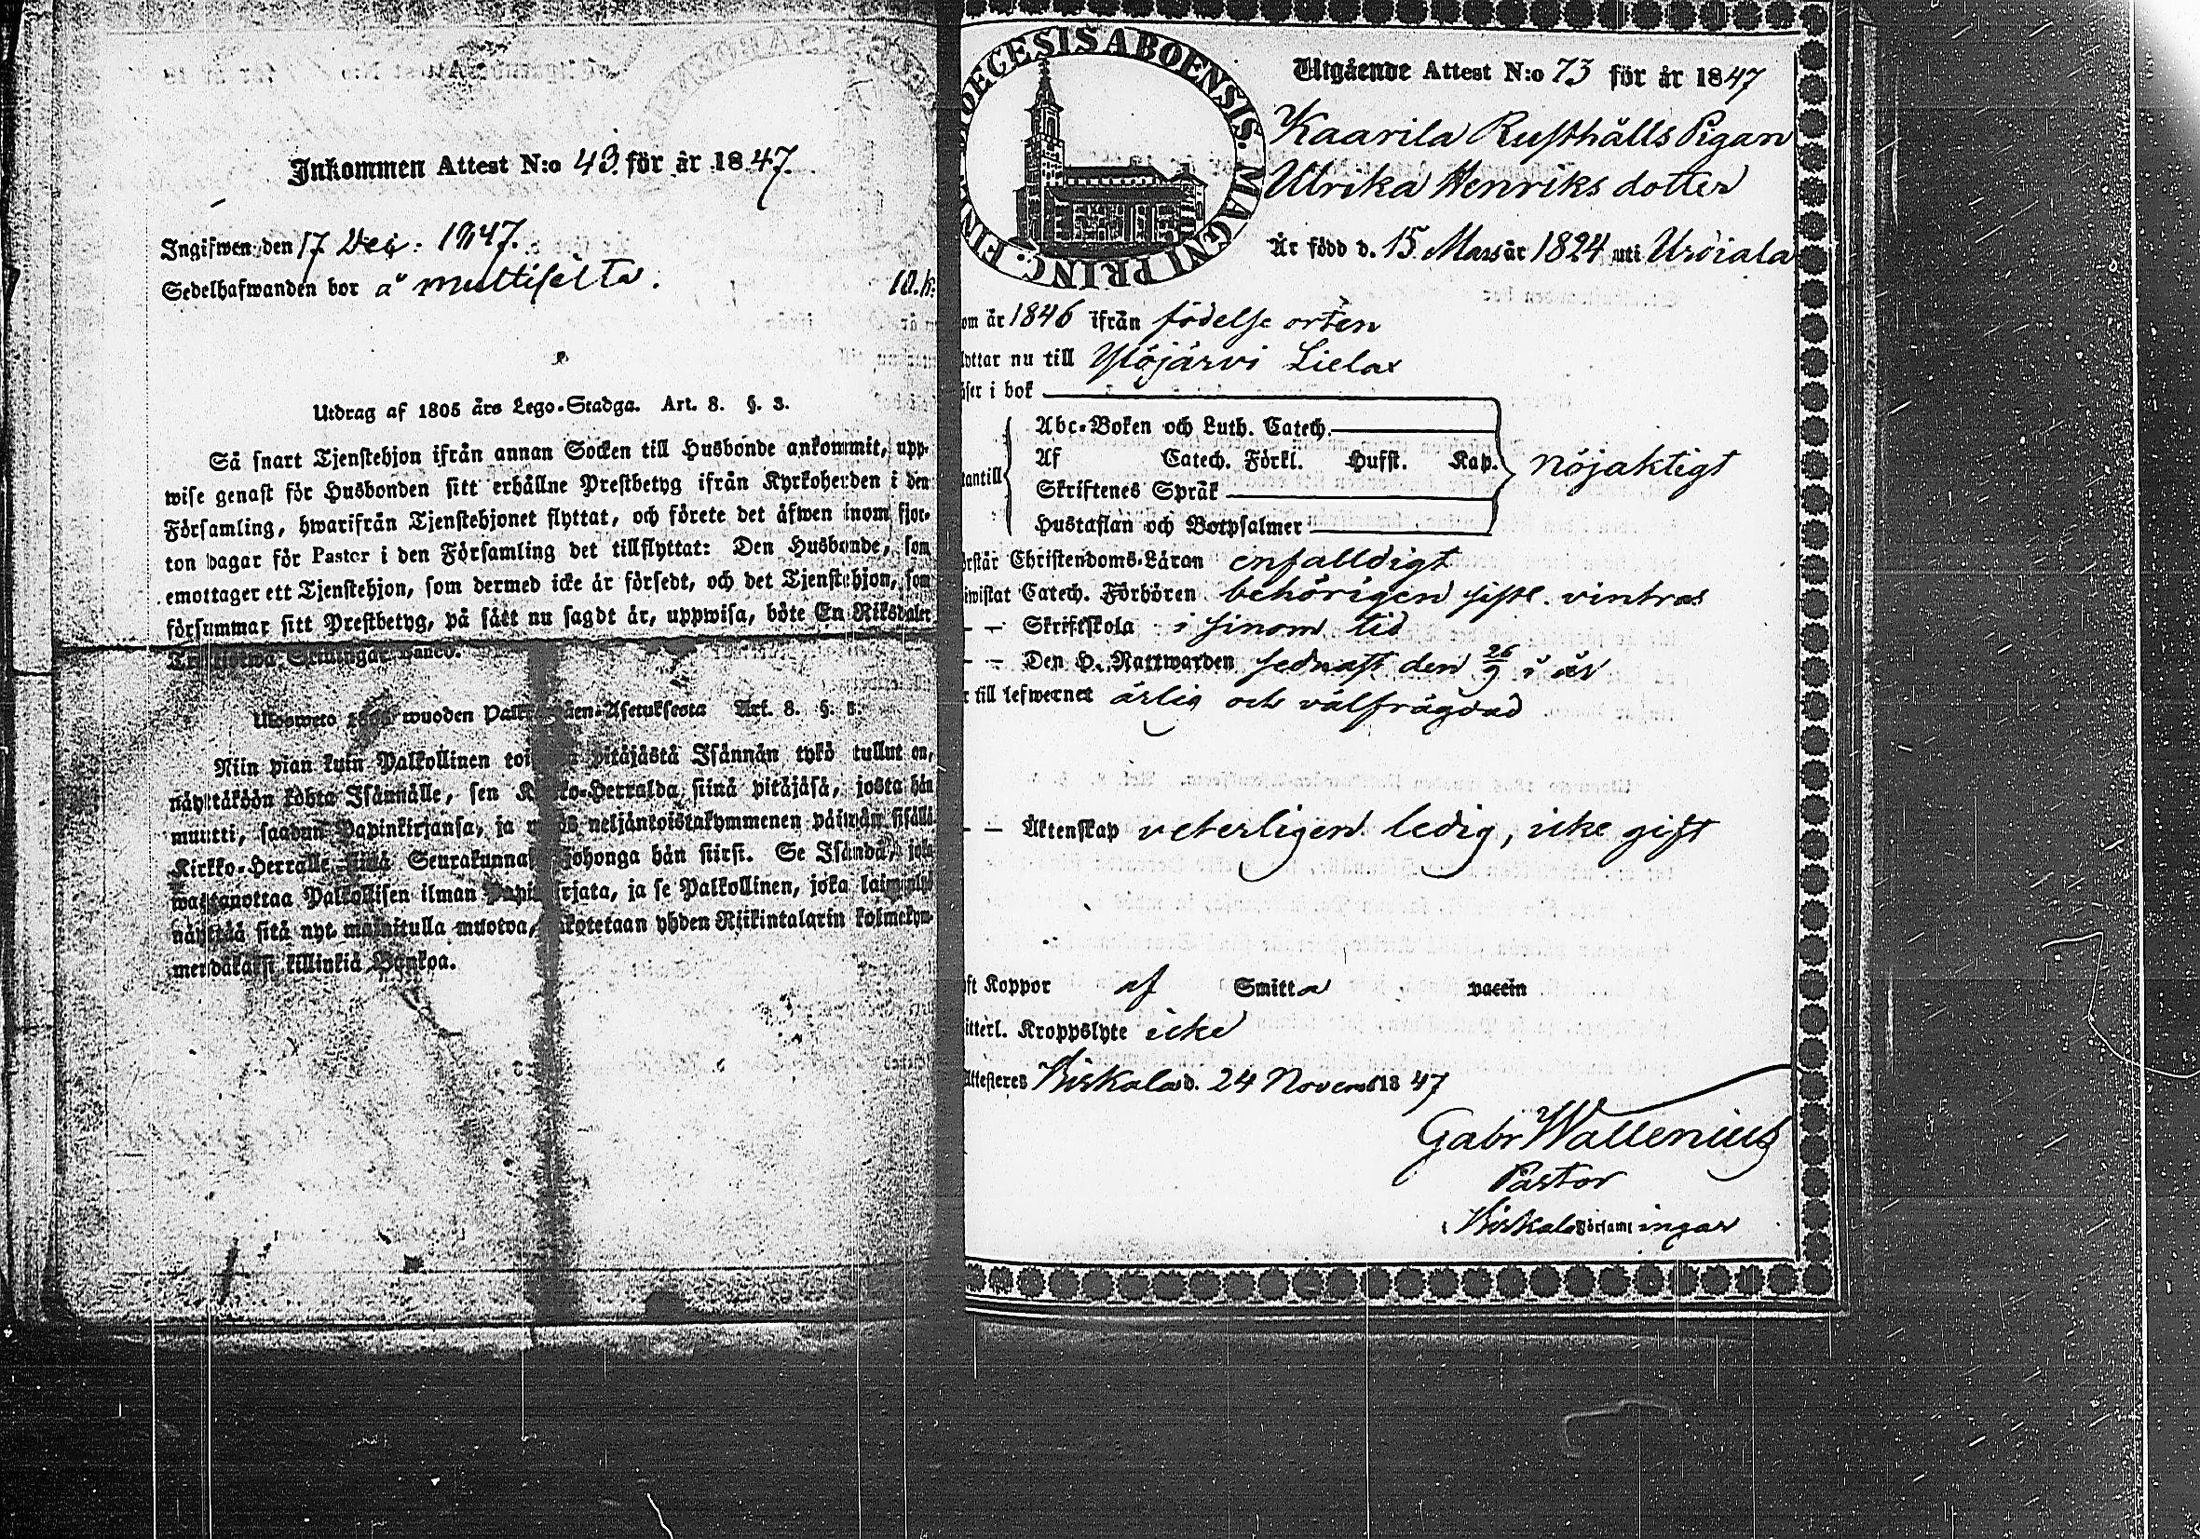 Inkommen Attest N:o 43 för år 1847.
Ingifwen den 17 Dec: 1847.
Sedelhafwanden bor å multisilta.
10.k:
Utdrag af 1805 års Lego-Stadga. Art. 8. §. 3.
Så snart Tjenstehjon ifrån annan Socken till Husbonde ankommit, upp-
wise genast för Husbonden sitt erhållne Prestbetyg ifrån Kyrkoherden i den
Församling, hwarifrån Tjenstehjonet flyttat, och förete det äfwen inom fjor-
ton dagar för Pastor i den Församling det tillflyttat: Den Husbonde, som
emottager ett Tjenstehjon, som dermed icke är försedt, och det Tjenstehjon, som
försummar sitt Prestbetyg, på sätt nu sagdt är, uppwisa, böte En Riksdaler
Banco.
wuoden Art. 8. §. 3.
Niin pian kuin Palkollinen pitäjästä Isännän tykö tullut on,
näyttäköön kohta Isännälle, sen siinä pitäjäsä, josta hän
muutti, saadun Papinkirjansa, ja neljäntoistakymmenen päiwän sisällä
Kirkko-Herralle siinä Seurakunnas johonga hän siirsi. Se Isändä, joka
wastanottaa Palkollisen ilman ja se Palkollinen, joka
näyttää sitä nyt mainitulla muotoa, sakotetaan yhden Riikintalarin kolmekym-
mendäkaksi killinkiä Bankoa.
DIOECESIS ABOENSIS. MAGNI PRINC. FINL.
Utgående Attest N:o 73 för år 1847
Kaarila Rusthålls Pigan
Ulrika Henriks dotter
Är född d. 15 Mars år 1824 uti Urdiala
om år 1846 ifrån födelse orten
lyttar nu till Ylöjärvi Lielax
äser i bok
Abc-Boken och Luth. Catech.
Af Catech. Förkl. Husst. Kap. nöjaktigt
tantill
Skriftenes Språk
Hustaflan och Botpsalmer
örstår Christendoms-Läran enfalldigt
iwistat Catech. Förhören behörigen sistl. vintras
- - Skriftskola i sinom tid
- - Den H. Nattwarden sednast den 26/9 i år
r till lefwernet ärlig och välfrägdad
- - Äktenskap veterligen ledig, icke gift
ft Koppor af Smitta vaccin
itterl. Kroppslyte icke
Attesteres Birkala d. 24 Novem 1847
Gabr Wallenius
Pastor
i Birkala Församlingar